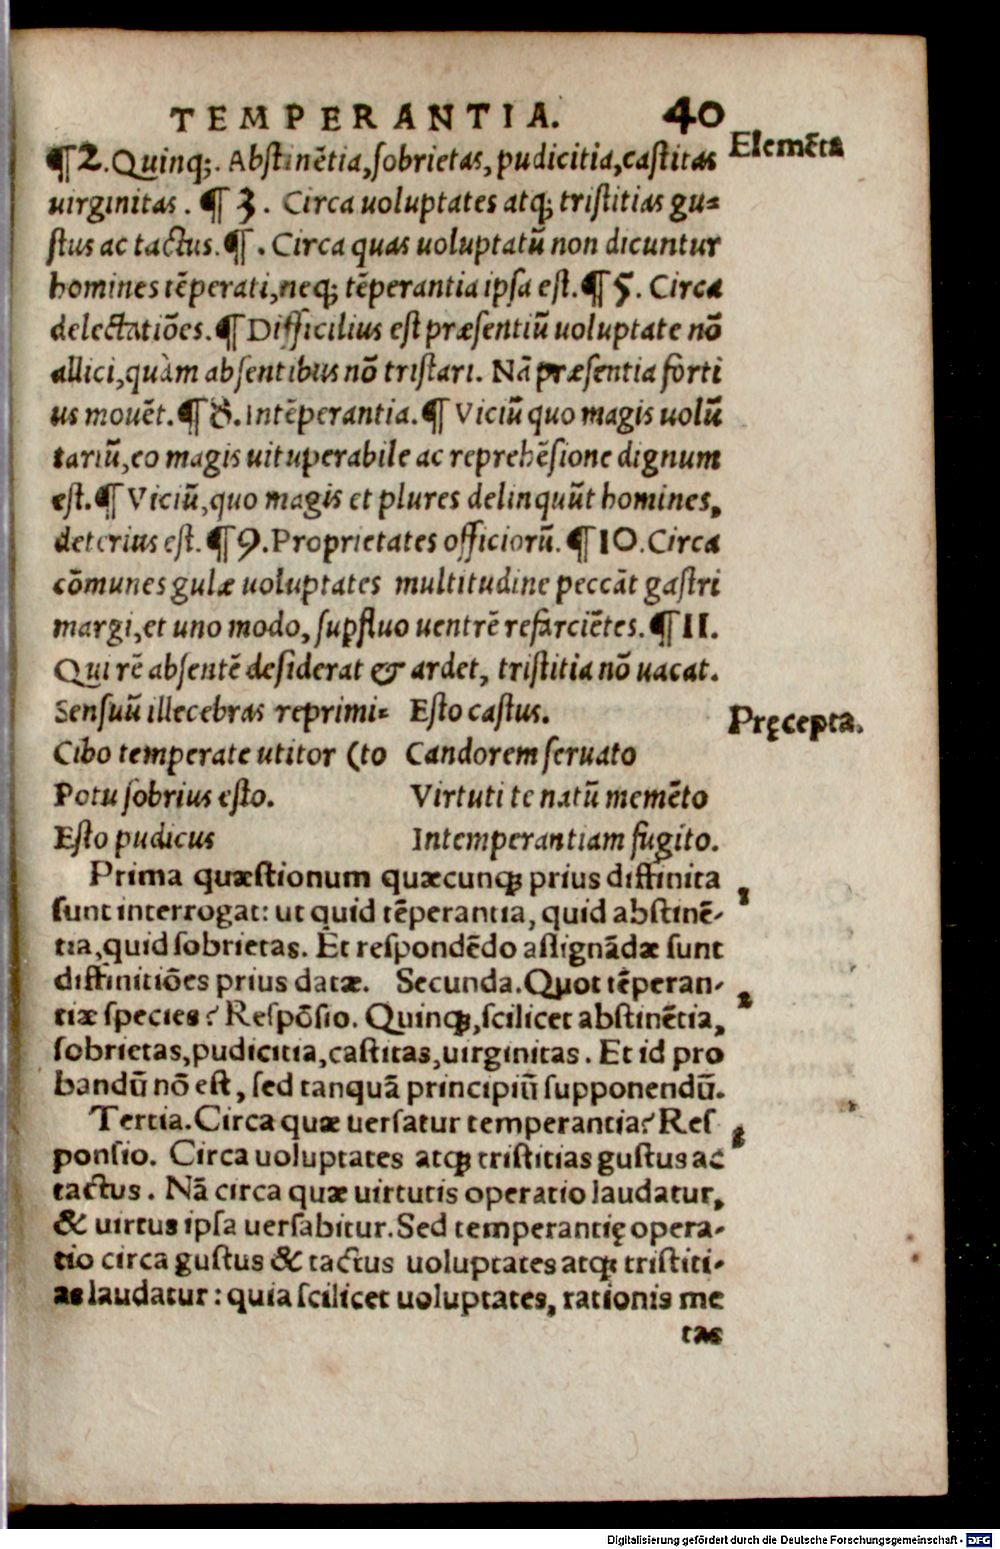 TEMPERANTIA. 40
¶2. Quinq;. Abstinẽtia, sobrietas, pudicitia, castitas Elemẽta
uirginitas. ¶ 3. Circa uoluptates atq; tristitias gu-
stus ac tactus. ¶. Circa quas uoluptatũ non dicuntur
homines tẽperati, neq; tẽperantia ipsa est. ¶ 5. Circa
delectatiões. ¶ Difficilius est præsentiũ uoluptate nõ
allici, quàm absentibus nõ tristari. Nã præsentia forti
us mouẽt. ¶ 8. Intẽperantia. ¶ Viciũ quo magis uolũ
tariũ, eo magis uituperabile ac reprehẽsione dignum
est. ¶ Viciũ, quo magis et plures delinquũt homines,
deterius est. ¶ 9. Proprietates officiorũ. ¶ 10. Circa
cõmunes gulæ uoluptates multitudine peccãt gastri
margi, et uno modo, supfluo uentrẽ refarciẽtes. ¶ 11.
Qui rẽ absentẽ desiderat & ardet, tristitia nõ uacat.
Sensuũ illecebras reprimi- Esto castus. Pręcepta.
Cibo temperate utitor (to Candorem seruato
Potu sobrius esto. Virtuti te natũ memẽto
Esto pudicus Intemperantiam fugito.
Prima quæstionum quæcunq; prius diffinita 1
sunt interrogat: ut quid tẽperantia, quid abstinẽ-
tia, quid sobrietas. Et respondẽdo assignãdæ sunt
diffinitiões prius datæ. Secunda. Quot tẽperan- 2
tiæ species? Respõsio. Quinq;, scilicet abstinẽtia,
sobrietas, pudicitia, castitas, uirginitas. Et id pro
bandũ nõ est, sed tanquã principiũ supponendũ.
Tertia. Circa quæ uersatur temperantia? Res 3
ponsio. Circa uoluptates atq; tristitias gustus ac
tactus. Nã circa quæ uirtutis operatio laudatur,
& uirtus ipsa uersabitur. Sed temperantię opera-
tio circa gustus & tactus uoluptates atq; tristiti-
as laudatur: quia scilicet uoluptates, rationis me
tas
Digitalisierung gefördert durch die Deutsche Forschungsgemeinschaft - DFG